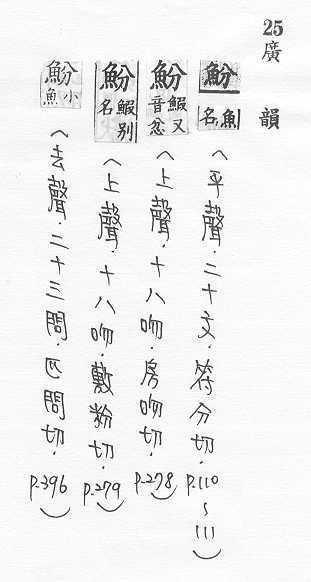 25 廣韻
魵 魚名 (平聲.二十文.符分切.P.110~111)
魵 鰕又音忿 (上聲.十八吻.房吻切.P.278)
魵 鰕别名 (上聲.十八吻.敷粉切.P.279)
魵 小魚 (去聲.二十三問.匹問切.P.396)